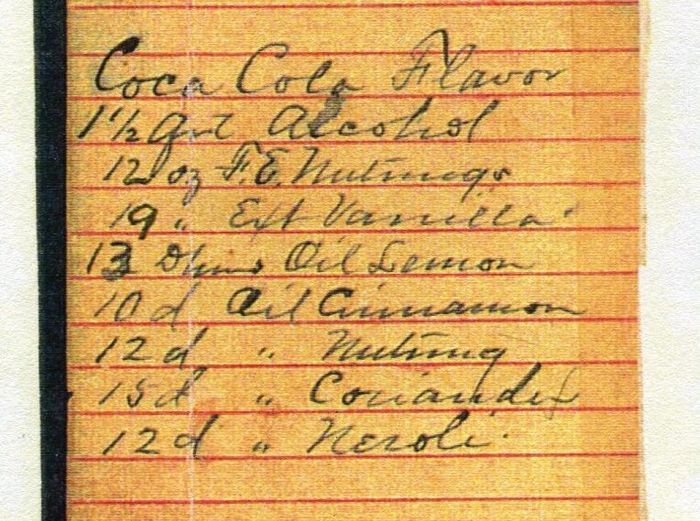 Coca Cola Flavor
1½ Qrt Alcohol
12 oz F.E. Nutmegs
19 " Ext Vanilla
13 Dhms Oil Lemon
10 d Oil Cinnamon
12 d " Nutmeg
15 d " Coriander
12 d " Neroli.